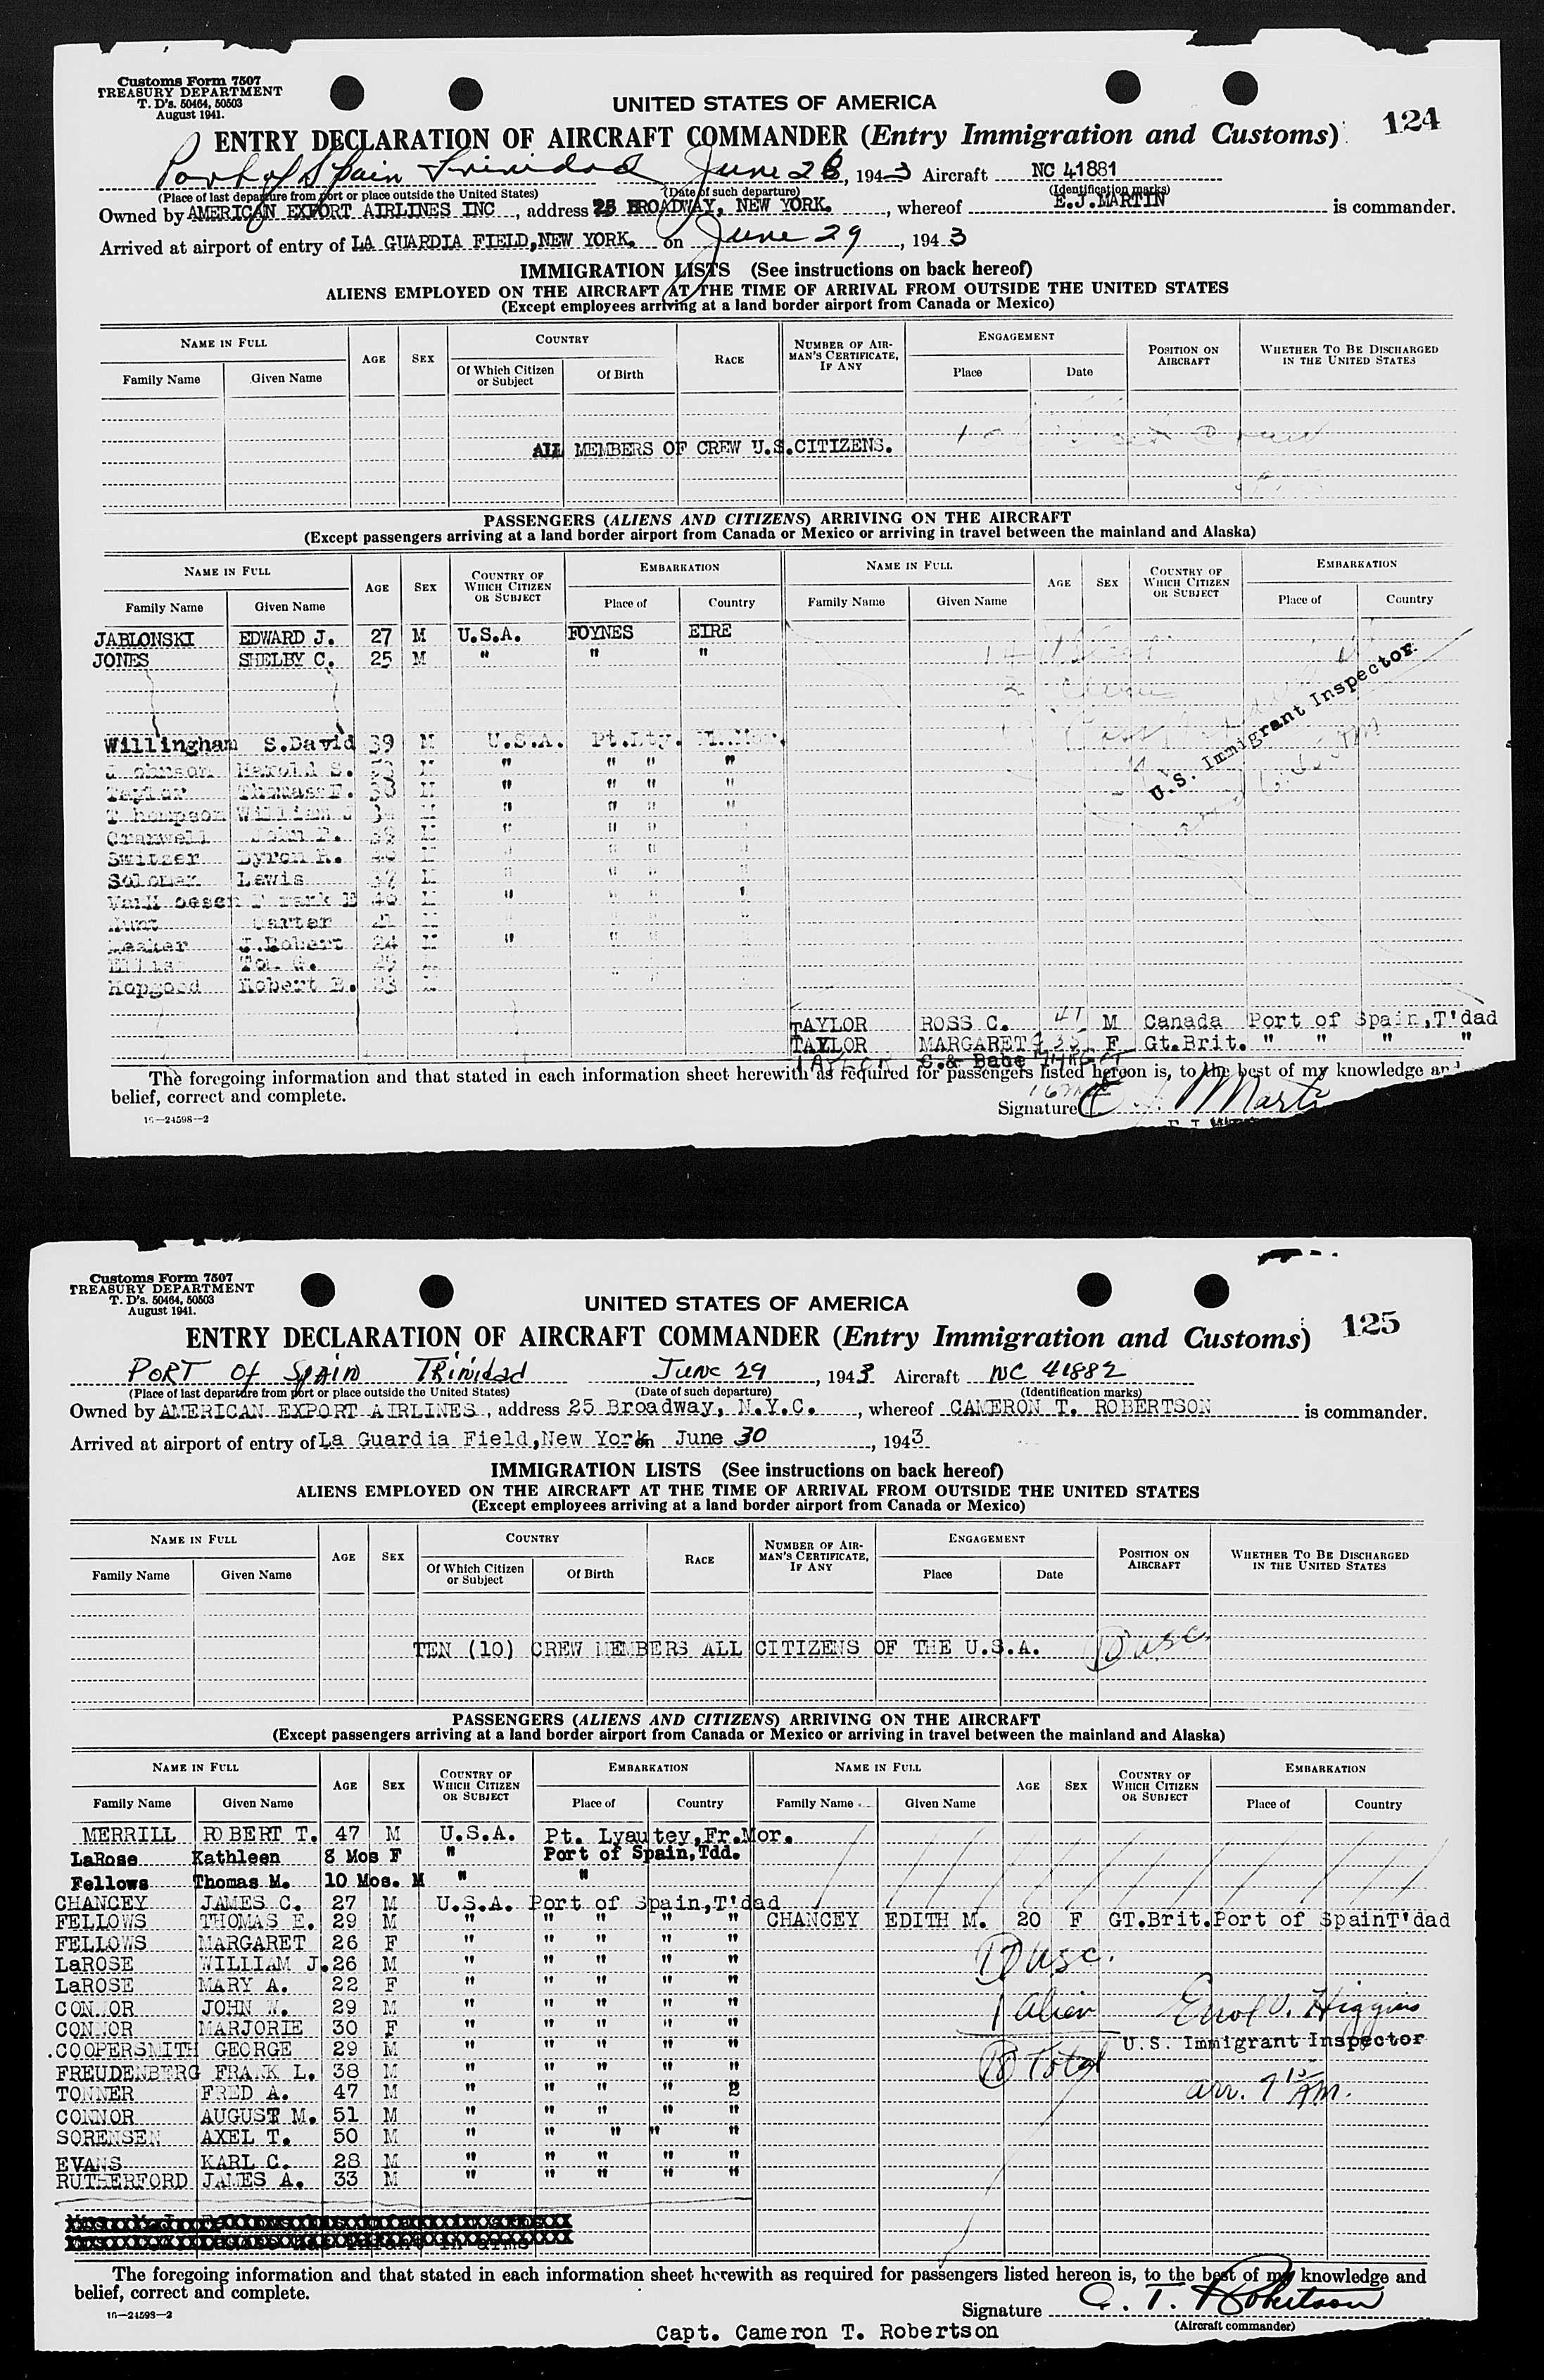 Customs Form 7507
TREASURY DEPARTMENT
T. D's. 50464, 50503
August 1941.
UNITED STATES OF AMERICA
124
ENTRY DECLARATION OF AIRCRAFT COMMANDER (Entry Immigration and Customs)
Port of Spain Trinidad June 28, 1943 Aircraft NC 41881
(Place of last departure from port or place outside the United States) (Date of such departure) (Identification marks)
Owned by AMERICAN EXPORT AIRLINES INC, address 25 BROADWAY, NEW YORK., whereof E.J.MARTIN is commander.
Arrived at airport of entry of LA GUARDIA FIELD, NEW YORK. on June 29, 1943
IMMIGRATION LISTS (See instructions on back hereof)
ALIENS EMPLOYED ON THE AIRCRAFT AT THE TIME OF ARRIVAL FROM OUTSIDE THE UNITED STATES
(Except employees arriving at a land border airport from Canada or Mexico)
NAME IN FULL AGE SEX COUNTRY RACE NUMBER OF AIRMAN'S CERTIFICATE, IF ANY ENGAGEMENT POSITION ON AIRCRAFT WHETHER TO BE DISCHARGED IN THE UNITED STATES
Family Name Given Name Of Which Citizen or Subject Of Birth Place Date
ALL MEMBERS OF CREW U.S.CITIZENS.
PASSENGERS (ALIENS AND CITIZENS) ARRIVING ON THE AIRCRAFT
(Except passengers arriving at a land border airport from Canada or Mexico or arriving in travel between the mainland and Alaska)
NAME IN FULL AGE SEX COUNTRY OF WHICH CITIZEN OR SUBJECT EMBARKATION NAME IN FULL AGE SEX COUNTRY OF WHICH CITIZEN OR SUBJECT EMBARKATION
Family Name Given Name Place of Country Family Name Given Name Place of Country
JABLONSKI EDWARD J. 27 M U.S.A. FOYNES EIRE
JONES SHELBY C. 25 M " " "
U.S. Immigrant Inspector
Willingham S.David 39 M U.S.A. Pt.Lty.
Johnson Harold S. M " " " "
Taylor Thomas F. 38 M " " " "
Thompson William M " " " "
Cramwell John M " " "
Switzer Byron R. M " " "
Soloman Lewis 37 M " " "
Frank E 40 M " " " "
Hunt Carter 21 M
Meaker J.Robert 24 M " " "
Ellis Tom G. 29
Hopgood Robert B. 23 M
TAYLOR ROSS C. 41 M Canada Port of Spain,T'dad
TAYLOR MARGARET 35 F Gt.Brit. " " " "
TAYLOR C.& Babe
The foregoing information and that stated in each information sheet herewith as required for passengers listed hereon is, to the best of my knowledge and
belief, correct and complete.
Signature E. J. Marti
16—24598—2
Customs Form 7507
TREASURY DEPARTMENT
T. D's. 50464, 50503
August 1941.
UNITED STATES OF AMERICA
125
ENTRY DECLARATION OF AIRCRAFT COMMANDER (Entry Immigration and Customs)
PORT Of SPAIN TRINIdad June 29, 1943 Aircraft NC 41882
(Place of last departure from port or place outside the United States) (Date of such departure) (Identification marks)
Owned by AMERICAN EXPORT AIRLINES, address 25 Broadway, N.Y.C., whereof CAMERON T. ROBERTSON is commander.
Arrived at airport of entry of La Guardia Field, New York on June 30, 1943
IMMIGRATION LISTS (See instructions on back hereof)
ALIENS EMPLOYED ON THE AIRCRAFT AT THE TIME OF ARRIVAL FROM OUTSIDE THE UNITED STATES
(Except employees arriving at a land border airport from Canada or Mexico)
NAME IN FULL AGE SEX COUNTRY RACE NUMBER OF AIRMAN'S CERTIFICATE, IF ANY ENGAGEMENT POSITION ON AIRCRAFT WHETHER TO BE DISCHARGED IN THE UNITED STATES
Family Name Given Name Of Which Citizen or Subject Of Birth Place Date
TEN (10) CREW MEMBERS ALL CITIZENS OF THE U.S.A. 10 usc
PASSENGERS (ALIENS AND CITIZENS) ARRIVING ON THE AIRCRAFT
(Except passengers arriving at a land border airport from Canada or Mexico or arriving in travel between the mainland and Alaska)
NAME IN FULL AGE SEX COUNTRY OF WHICH CITIZEN OR SUBJECT EMBARKATION NAME IN FULL AGE SEX COUNTRY OF WHICH CITIZEN OR SUBJECT EMBARKATION
Family Name Given Name Place of Country Family Name Given Name Place of Country
MERRILL ROBERT T. 47 M U.S.A. Pt. Lyautey,Fr.Mor.
LaRose Kathleen 8 Mos F " Port of Spain,Tdd.
Fellows Thomas M. 10 Mos. M " "
CHANCEY JAMES C. 27 M U.S.A. Port of Spain,T'dad
FELLOWS THOMAS E. 29 M " " " " " CHANCEY EDITH M. 20 F GT.Brit. Port of SpainT'dad
FELLOWS MARGARET 26 F " " " " "
LaROSE WILLIAM J. 26 M " " " " " 17 usc.
LaROSE MARY A. 22 F " " " " "
CONNOR JOHN W. 29 M " " " " " 1 Alien Errol O. Higgins
CONNOR MARJORIE 30 F " " " " "
COOPERSMITH GEORGE 29 M " " " " " U.S. Immigrant Inspector
FREUDENBERG FRANK L. 38 M " " " " " 18 Total
TONNER FRED A. 47 M " " " " 2 arr. 7 15 AM.
CONNOR AUGUST M. 51 M " " " " "
SORENSEN AXEL T. 50 M " " " " "
EVANS KARL C. 28 M " " " " "
RUTHERFORD JAMES A. 33 M " " " " "
The foregoing information and that stated in each information sheet herewith as required for passengers listed hereon is, to the best of my knowledge and
belief, correct and complete.
Signature C. T. Robertson
16—24598—2
(Aircraft commander)
Capt. Cameron T. Robertson